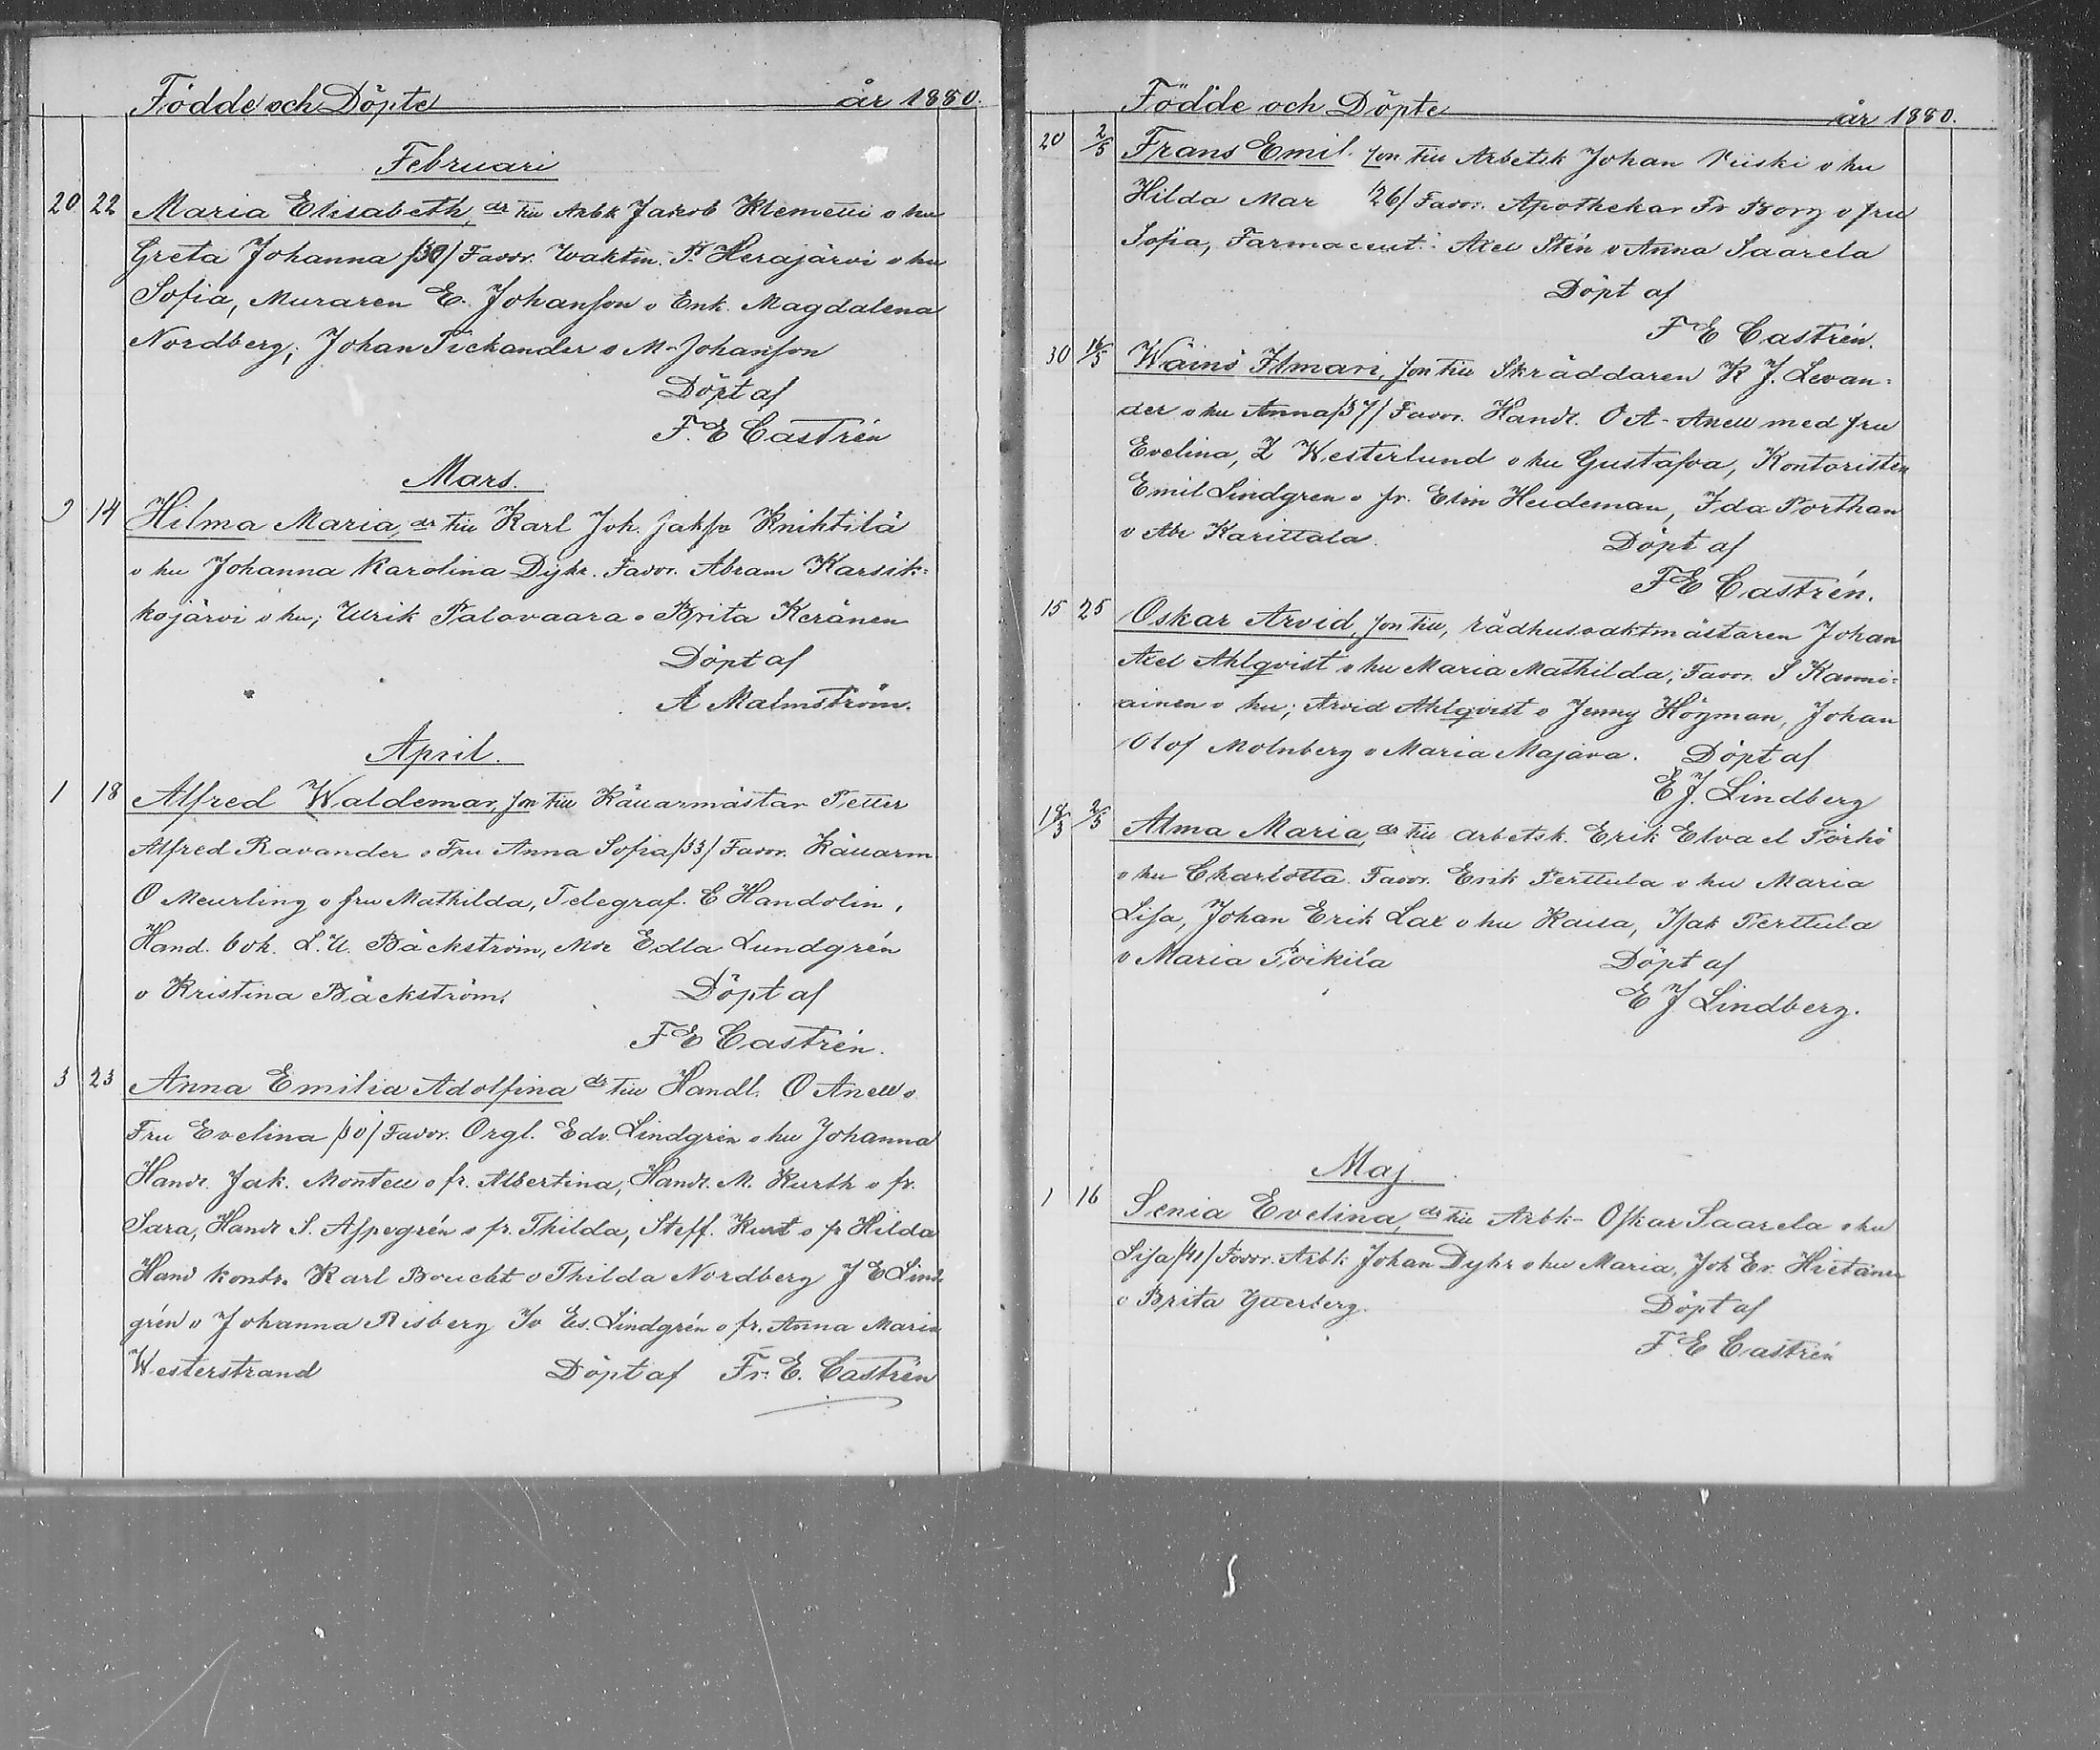 Födde och Döpte år 1880.
Februari
20 22 Maria Elisabeth, dr till Arbk Jakob Klemetti o hu
Greta Johanna /30/ Faddr. Waktm. P. Herajärvi o hu
Sofia, Muraren E. Johansson o Enk. Magdalena
Nordberg; Johan Fickander o M. Johansson
Döpt af
F. E Castrén
Mars.
9 14 Hilma Maria, dr till Karl Joh. Jakss Knihtilä
o hu Johanna Karolina Dyhr. Faddr. Abram Karsik-
kojärvi o hu; Ulrik Palovaara o Brita Keränen
Döpt af
A Malmström.
April.
1 18 Alfred Waldemar, son till Källarmästar Petter
Alfred Ravander o Fru Anna Sofia /33/ Faddr. Källarm
O Meurling o fru Mathilda, Telegraf. E Handolin,
Hand. bok. L. U. Bäckström, Mdr Edla Lundgrén
o Kristina Bäckström. Döpt af
F E Castrén.
3 23 Anna Emilia Adolfina dr till Handl. O Anell o
Fru Evelina /30/ Faddr. Orgl. Edv. Lindgrén o hu Johanna
Handl. Jak. Montell o fr. Albertina, Handl. M. Kurth o fr.
Sara, Handl S. Aspegrén o fr. Thilda, Steff. Kurt o fr Hilda
Hand kontr. Karl Boucht o Thilda Nordberg J E Lind-
grén o Johanna Risberg Es. Lindgrén o fr. Anna Maria
Westerstrand Döpt af Fr. E. Castrén
Födde och Döpte år 1880.
20 2/5 Frans Emil. son till Arbetsk Johan Niiski o hu
Hilda Mar /26/ Faddr. Apothekar Fr Borg o fru
Sofia, Farmaceut. Axel Stén o Anna Saarela
Döpt af
F E Castrén.
30 16/5 Wäinö Ilmari, son till Skräddaren K J. Levan-
der o hu Anna /37/ Faddr. Handl. O A. Anell med fru
Evelina, Z Westerlund o hu Gustafva, Kontoristen
Emil Lindgren o fr. Elin Heideman, Ida Porthan
o Abr Karittala. Döpt af
F E Castrén.
15 25 Oskar Arvid, son till, rådhusvaktmästaren Johan
Axel Ahlqvist o hu Maria Mathilda; Faddr. S Kanni-
ainen o hu; Arvid Ahlqvist o Jenny Högman, Johan
Olof Molnberg o Maria Majava. Döpt af
E J. Lindberg
18/3 2/5 Alma Maria, dr till arbetsk. Erik Elva el Törhö
o hu Charlotta. Faddr. Erik Perttula o hu Maria
Lisa, Johan Erik Lax o hu Kaisa, Isak Perttula
o Maria Döpt af
E J Lindberg.
Maj.
1 16 Senia Evelina, dr till Arbk. Oskar Saarela o hu
Lisa /41/ Faddr. Arbk Johan Dyhr o hu Maria, Joh Er. Hietanen
o Brita Döpt af
F. E Castrén